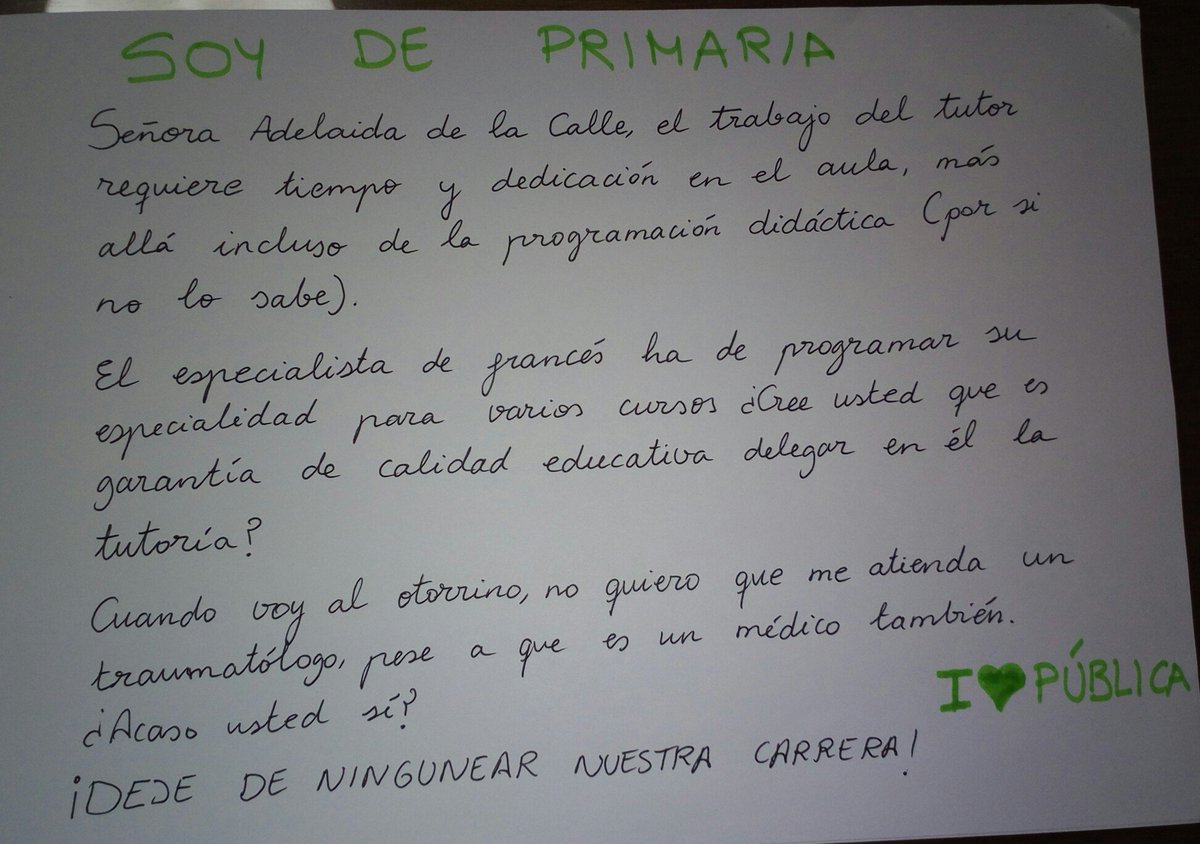 SOY DE PRIMARIA
Señora Adelaida de la Calle, el trabajo del tutor
requiere tiempo y dedicación en el aula, más
allá incluso de la programación didáctica (por si
no lo sabe).
El especialista de francés ha de programar su
especialidad para varios cursos ¿Cree usted que es
garantía de calidad educativa delegar en él la
tutoría?
Cuando voy al otorrino, no quiero que me atienda un
traumatólogo, pese a que es un médico también.
¿Acaso usted sí?
I ♥ PÚBLICA
¡DEJE DE NINGUNEAR NUESTRA CARRERA!